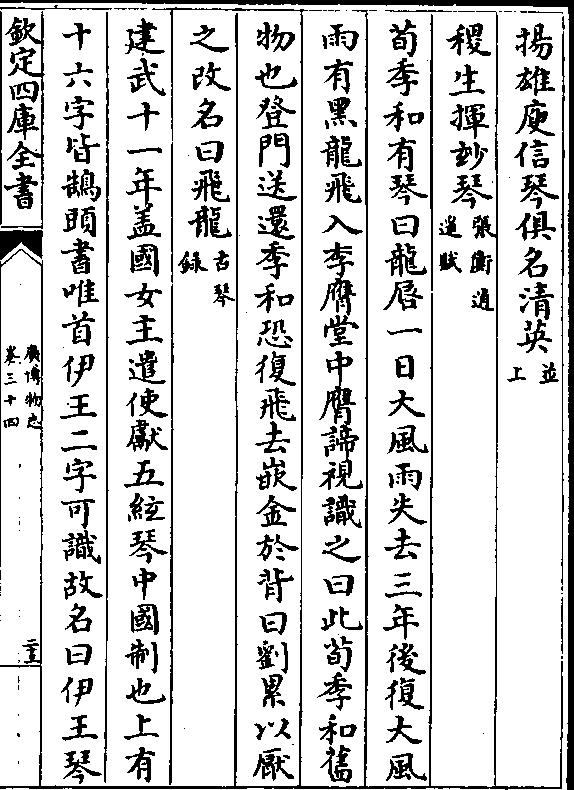 揚雄庾信琴俱名清英並上
稷生揮玅琴張衡逍遙賦
荀季和有琴曰龍唇一日大風雨失去三年後復大風
雨有黑龍飛入李膺堂中膺諦視識之曰此荀季和舊
物也登門送還季和恐復飛去嵌金於背曰劉累以厭
之改名曰飛龍古琴錄
建武十一年盖國女主遣使獻五絃琴中國制也上有
十六字皆鵠頭書唯首伊王二字可識故名曰伊王琴
欽定四庫全書
廣博物志
卷三十四
二十五